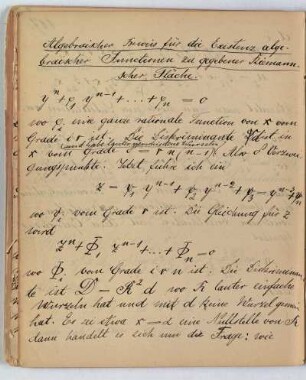 Algebraischer Beweis für die Existenz alge-
braischer Functionen zu gegebener Riemann-
scher Fläche.
yⁿ + φ₁ yⁿ⁻¹ + ... + φₙ = 0
wo φᵢ eine ganze rationale Function von x vom
Grade i r ist. Die Discriminante ist in
(und habe lauter verschiedene Wurzeln)
x vom Grade d = r n (n-1). Also d Verzwei-
gungspunkte. Jetzt führe ich ein
z = φ₁ yⁿ⁻¹ + φ₂ yⁿ⁻² + φ₃ yⁿ⁻³ +
wo φᵢ vom Grade r ist. Die Gleichung für z
wird
zⁿ + Φ₁ zⁿ⁻¹ + ... + Φₙ = 0
wo Φᵢ vom Grade i r n ist. Die Discriminan-
te ist D = K² d wo K lauter einfache
Wurzeln hat und mit d keine Wurzel gemein
hat. Es sei etwa x = α eine Nullstelle von K
dann handelt es sich um die Frage: wie